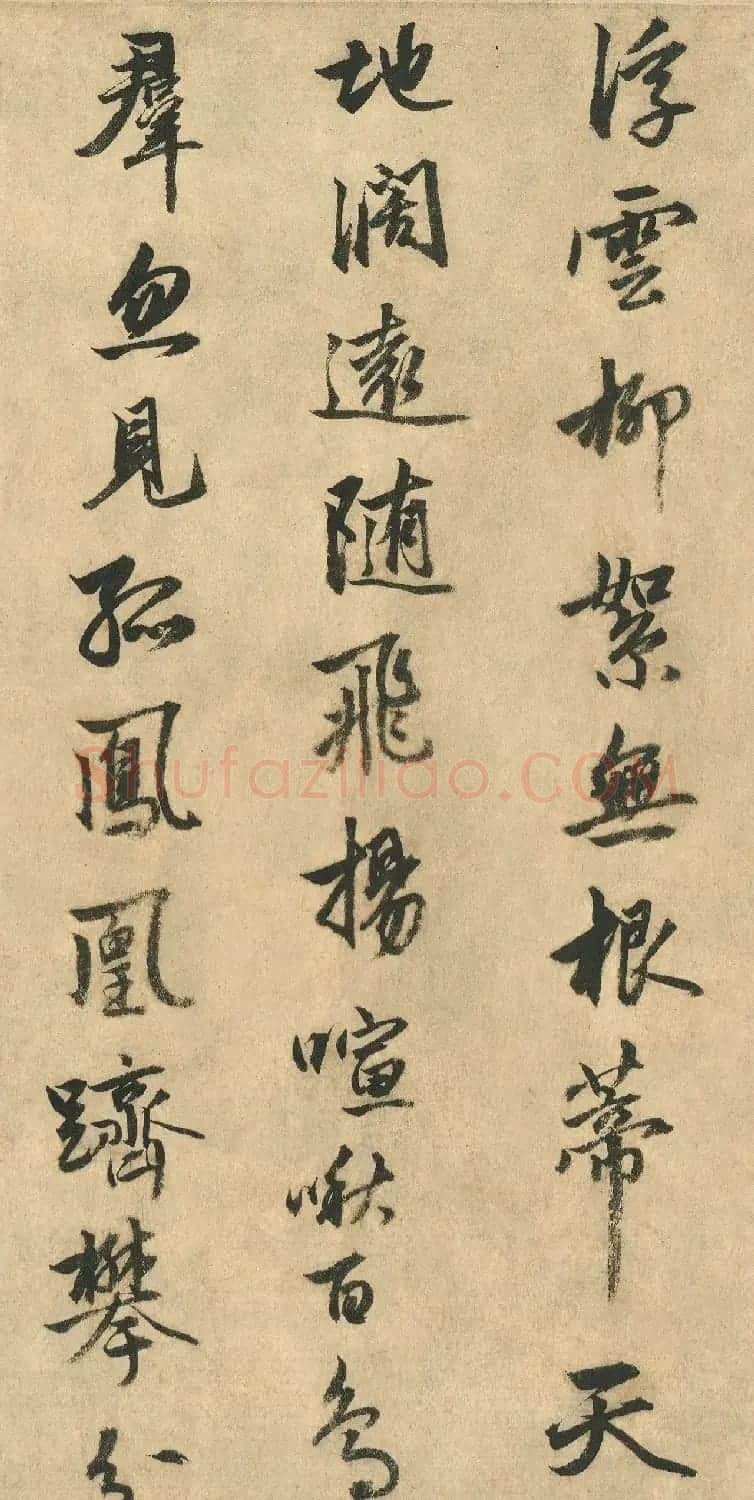 浮雲柳絮無根蒂天
地濶遠随飛揚喧啾百鳥
羣忽見孤鳳凰躋攀分
Shufaziliao.COM